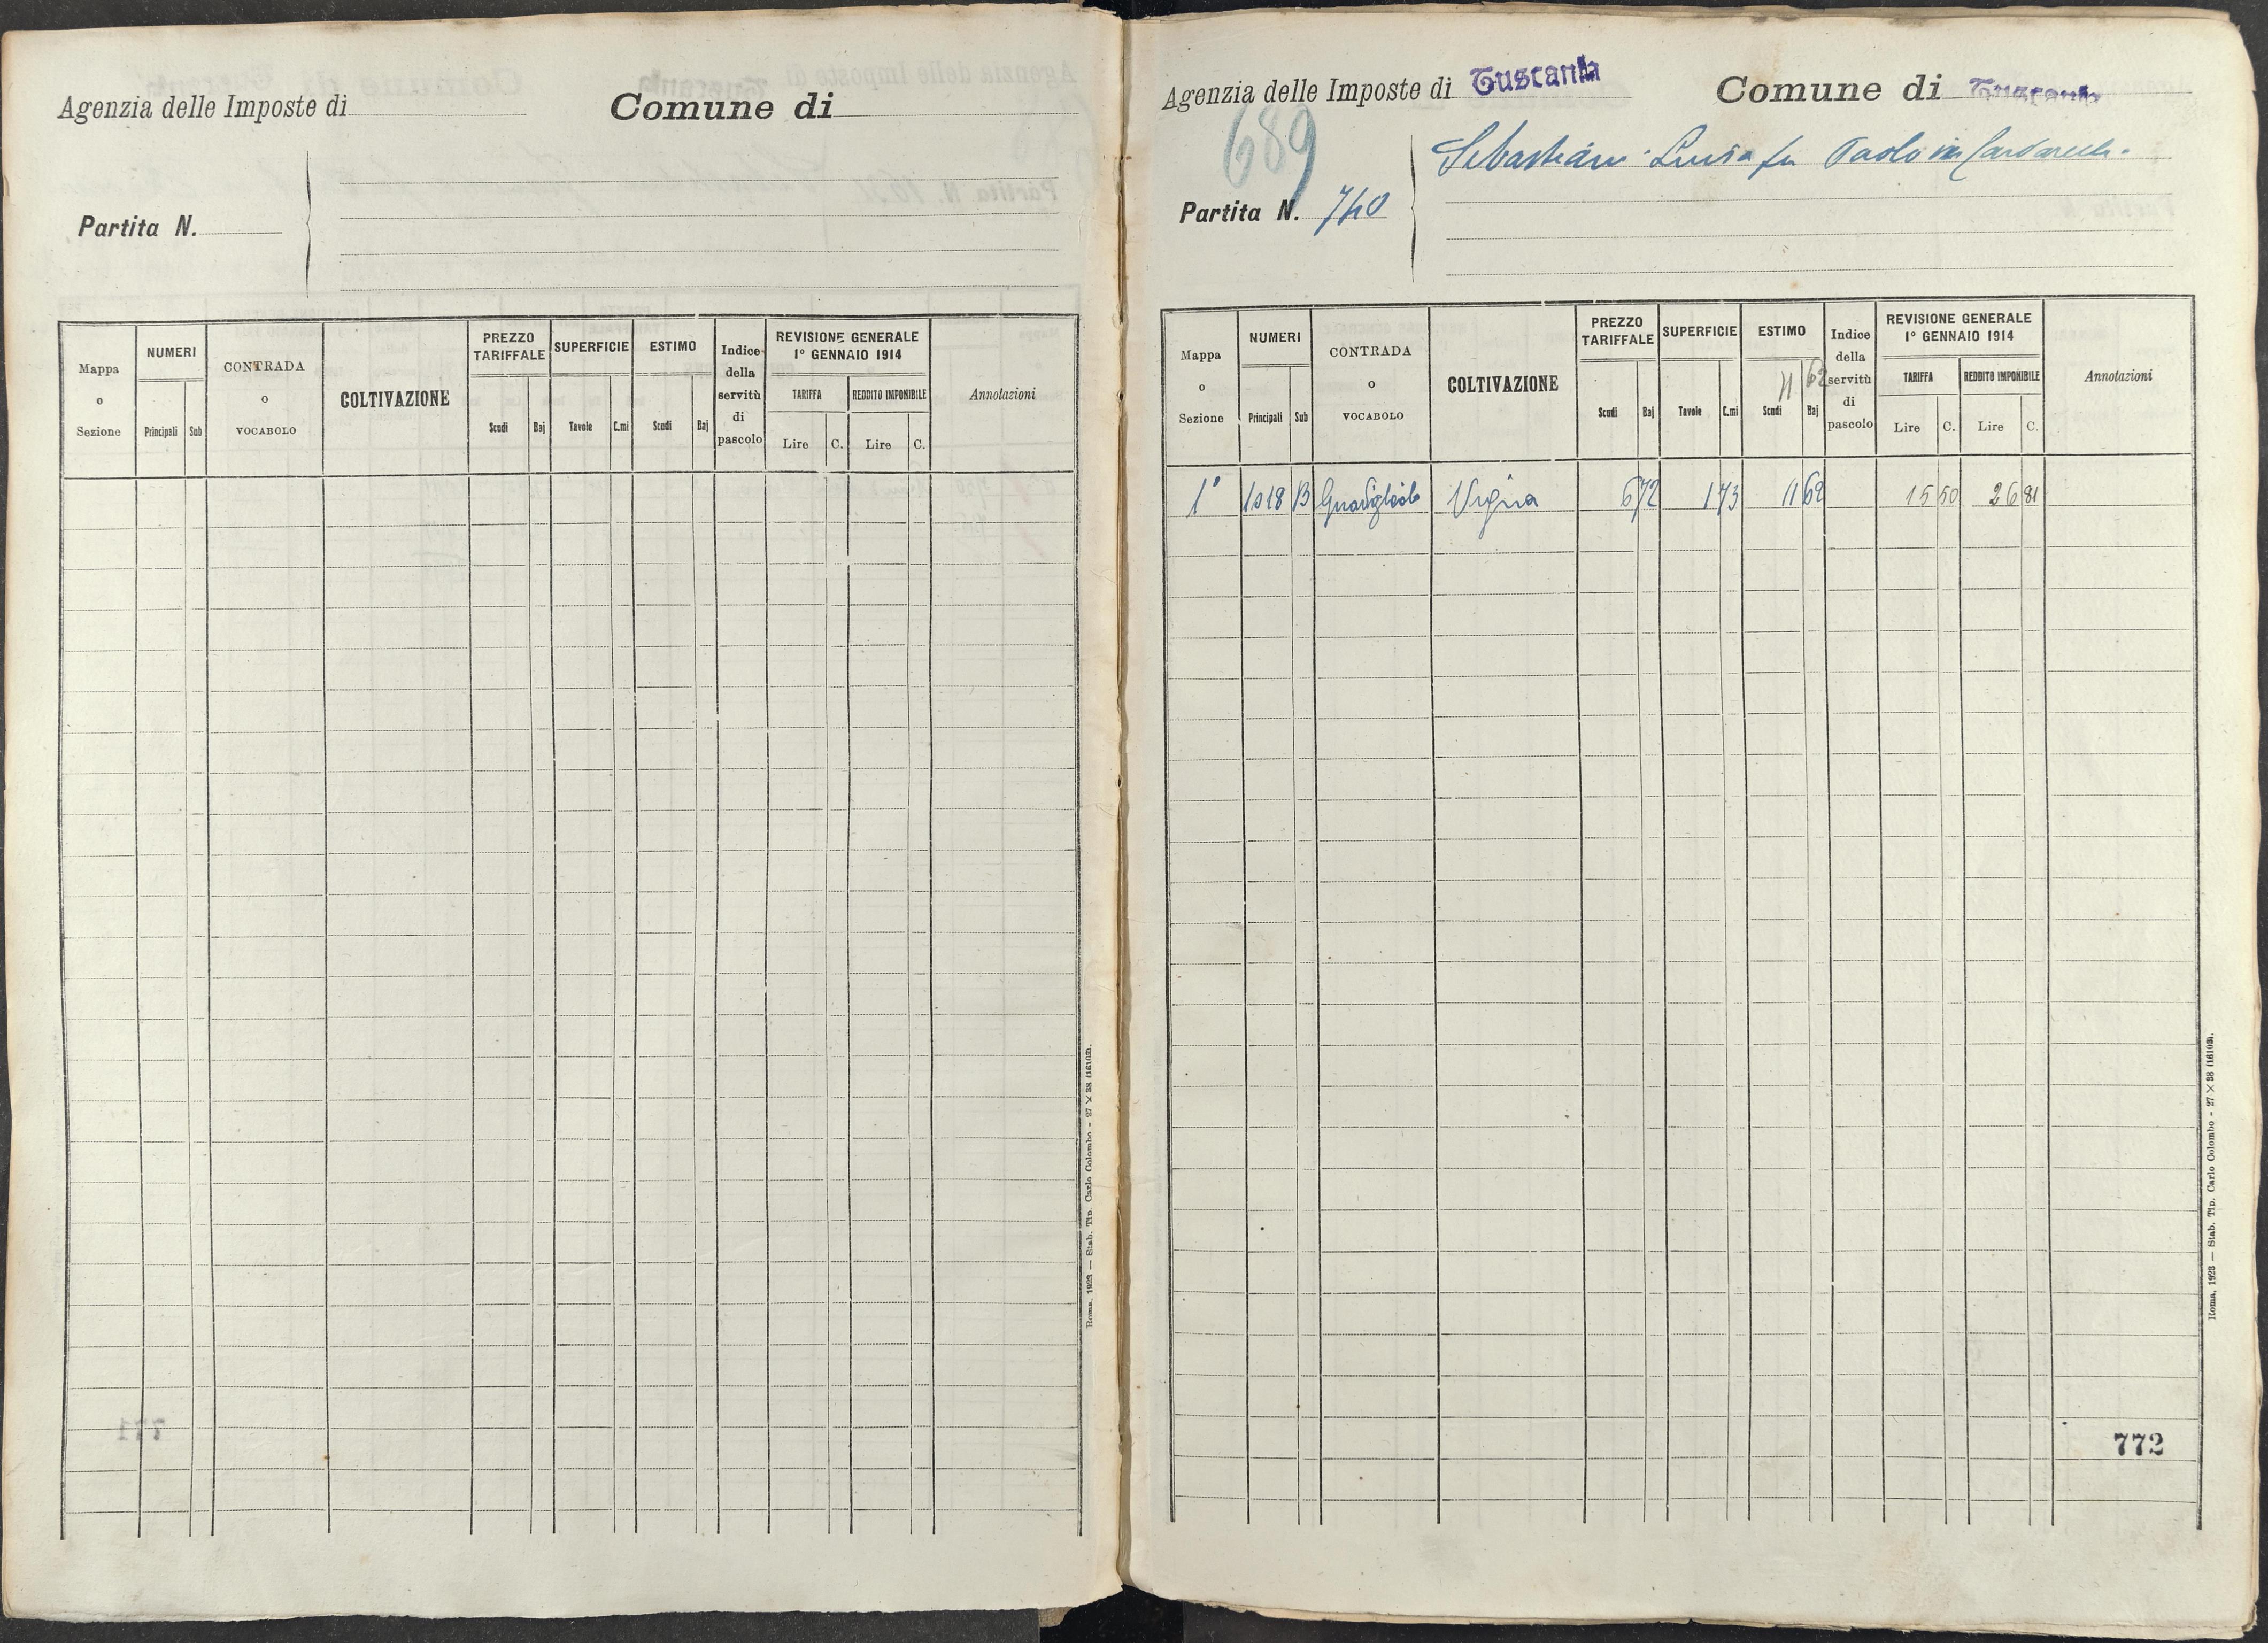 Agenzia delle Imposte di
Comune di
Partita N.
Mappa o Sezione
NUMERI
Principali Sub
CONTRADA O VOCABOLO
COLTIVAZIONE
PREZZO TARIFFALE
Scudi Baj
SUPERFICIE
Tavole C.mi
ESTIMO
Scudi Baj
Indice della servitù di pascolo
REVISIONE GENERALE
1° GENNAIO 1914
TARIFFA REDDITO IMPONIBILE
Lire C. Lire C.
Annotazioni
Roma, 1923 — Stab. Tip. Carlo Colombo - 27 × 38 (16103).
Agenzia delle Imposte di Tuscania
Comune di Tuscania
689
Partita N. 740
Sebastiani Luisa fu Paolo in Cardarelli.
Mappa o Sezione
NUMERI
Principali Sub
CONTRADA O VOCABOLO
COLTIVAZIONE
PREZZO TARIFFALE
Scudi Baj
SUPERFICIE
Tavole C.mi
ESTIMO
11 62
Scudi Baj
Indice della servitù di pascolo
REVISIONE GENERALE
1° GENNAIO 1914
TARIFFA REDDITO IMPONIBILE
Lire C. Lire C.
Annotazioni
1° 1018 B Vigna 6 72 1 73 11 62 15 50 26 81
772
Roma, 1923 — Stab. Tip. Carlo Colombo - 27 × 38 (16103).